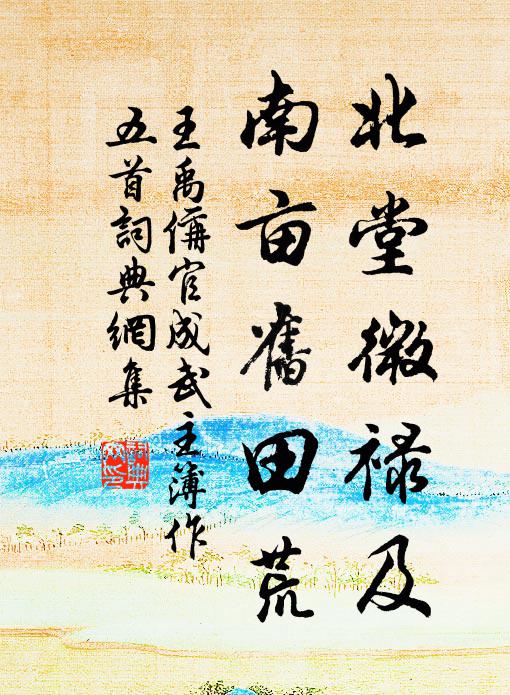 北堂微禄及
南亩舊田荒
王禹偁官成武主簿作
五首詞典網集